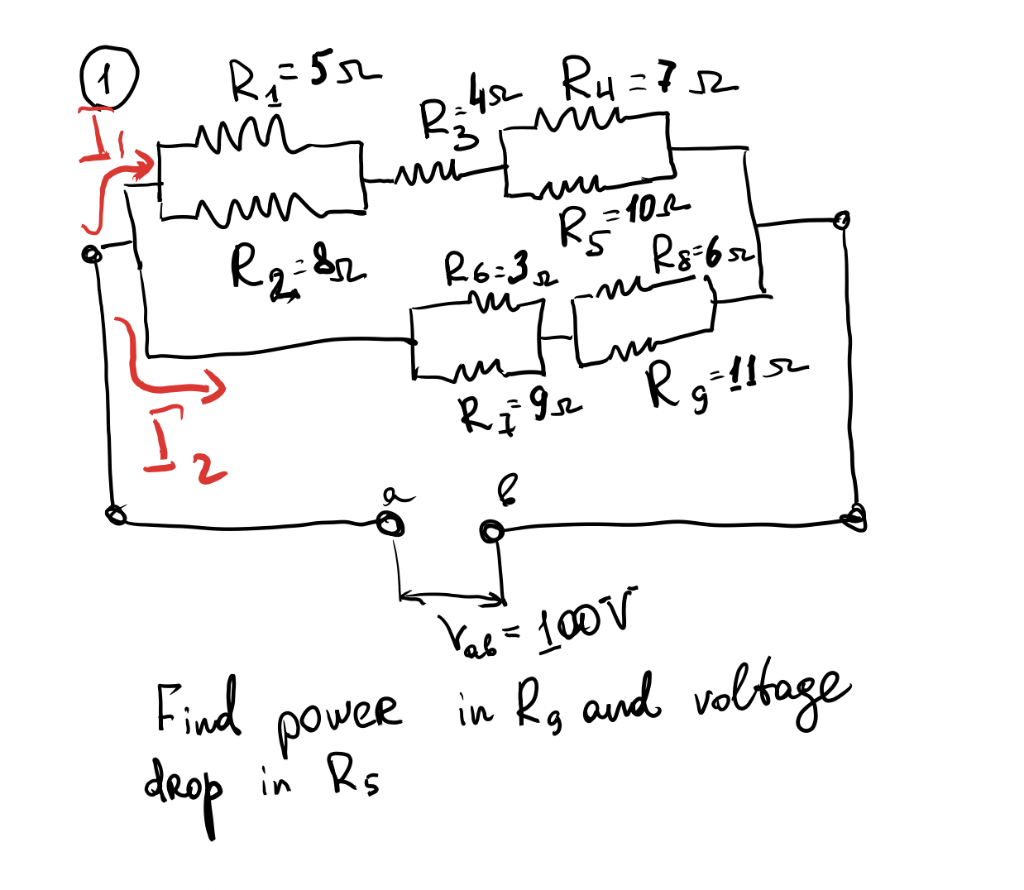 1
R1=5Ω
R3=4Ω
R4=7Ω
I1
R2=8Ω
R5=10Ω
R6=3Ω
R8=6Ω
R7=9Ω
R9=11Ω
I2
a
b
Vab=100V
Find power in R9 and voltage
drop in R5